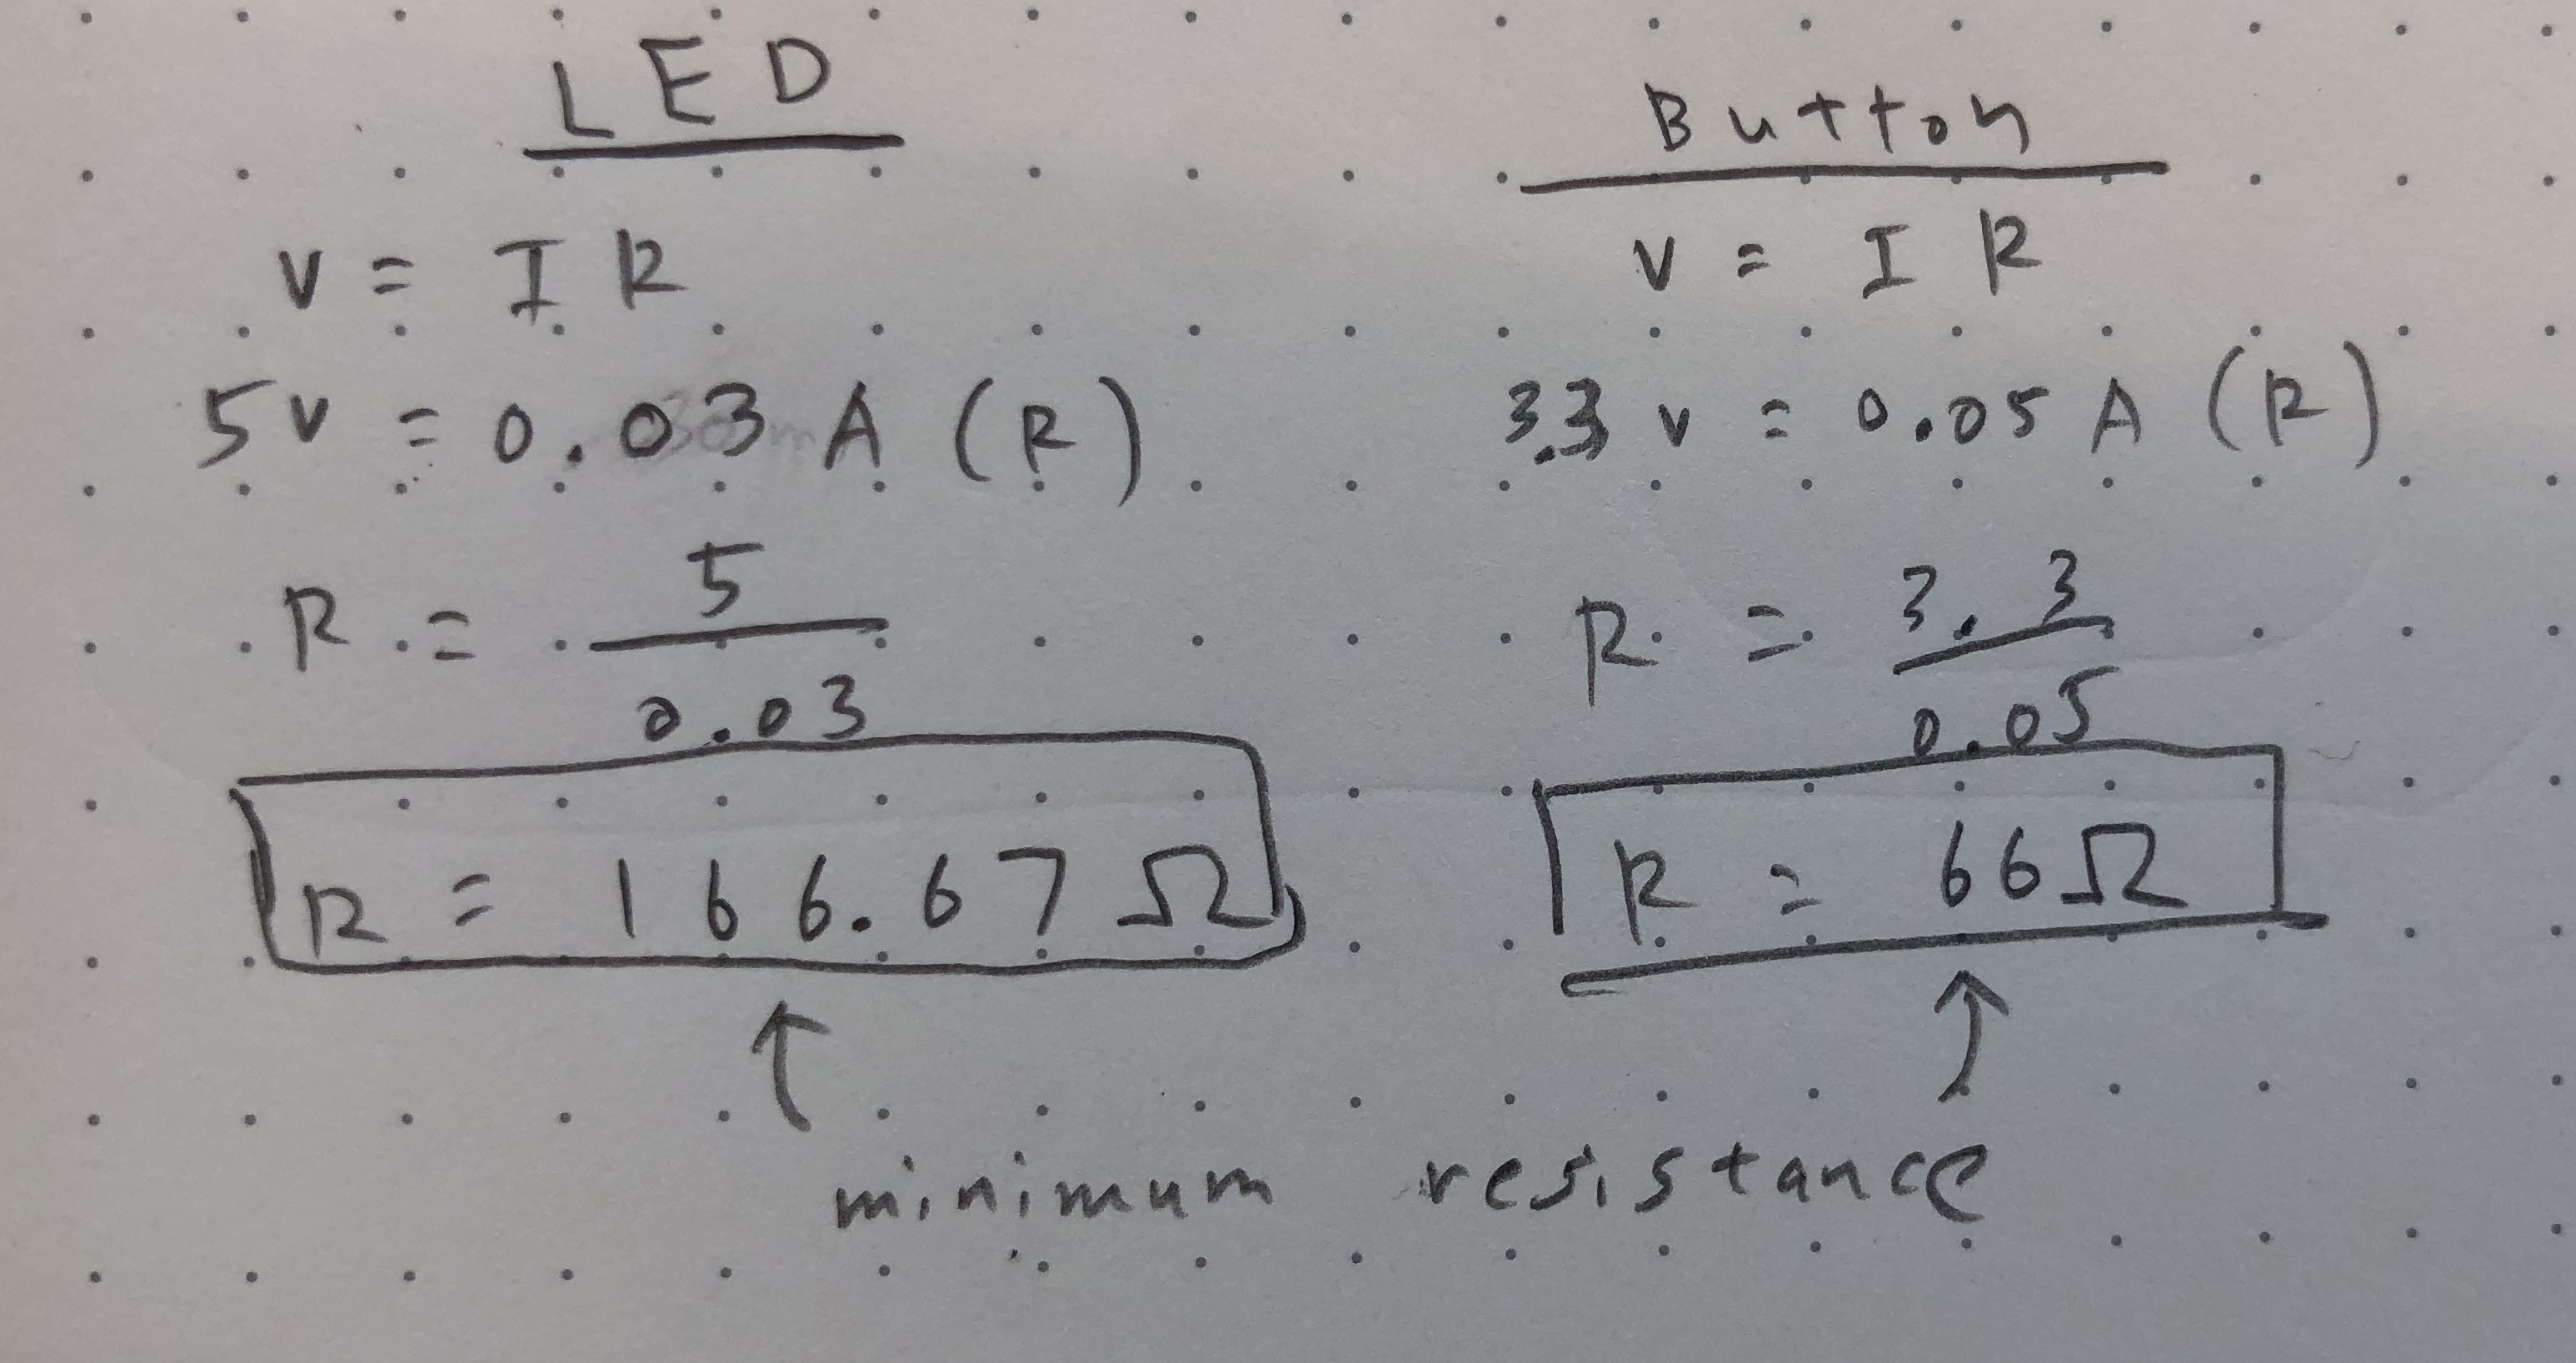 LED
V = IR
5V = 0.03 A (R)
R = 5
0.03
R = 166.67 Ω
Button
V = IR
3.3 V = 0.05 A (R)
R = 3.3
0.05
R = 66 Ω
minimum resistance